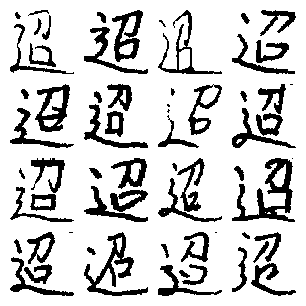 迢迢迢迢
迢迢迢迢
迢迢迢迢
迢迢迢迢